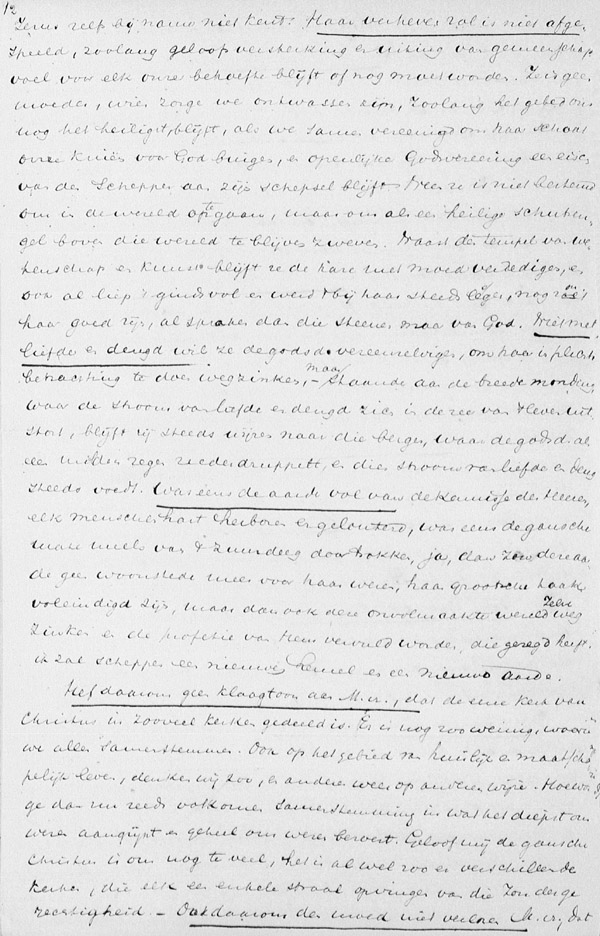 12
Jezus zelf bij name niet kent. Haar verheven rol is niet afge-
speeld, zoolang geloof versterking en uiting van gemeenschap
voor elk onzer behoefte blijft of nog moet worden. Zeis geen
moeder, wier zorge we ontwassen zijn, zoolang het gebed ons
nog het heiligst blijft, als we samen vereenigd om haar schoot
onze knieën voor God buigen, en openlijke Godsvereering een eisch
van den Schepper aan zijn schepsel blijft. Neen ze is niet bestemd
om in de wereld op te gaan, maar om als een heilige schuts en-
gel boven die wereld te blijven zweven. Naast den tempel van we-
tenschap en kunst blijft ze de hare met moed verdedigen, en
ook al liep 't ginds vol en werd 't bij haar steeds leeger, nog zou
haar goed zijn, al spraken dan die steenen maar van God. Niet met
liefde en deugd wil ze de godsd. vereenzelvigen, om haar in plichts-
betrachting te doen wegzinken, – maar staande aan de breede monding
waar de stroom van liefde en deugd zich in de zee van 't leven uit-
stort, blijft zij steeds wijzen naar die bergen, waar de godsd. als
een milden regen nederdruppelt, en dien stroom van liefde en deugd
steeds voedt. Was eens de aarde vol van de kennisse des Heeren,
elk menschenhart herboren en gelouterd, was eens de gansche
van 't zuurdeeg doortrokken, ja, dan zou de aar-
de geen woonstede meer voor haar wezen, haar grootsche taak
voleindigd zijn, maar dan ook deze onvolmaakte wereld zelve weg
zinken en de profetie van Hem vervuld worden, die gezegd heeft:
ik zal scheppen een nieuwen hemel en een nieuwe aarde.
Hef daarom geen klaagtoon aan M. vr., dat de eene kerk van
Christus in zooveel kerken gedeeld is. Er is nog zoo weinig, waarin
we allen samenstemmen. Ook op het gebied van huislijk en maatschap-
pelijk leven, denken wij zoo, en anderen weer op andere wijze. Hoe
ge dan nu reeds volkomen samenstemming in wat het diepst ons
wezen aangrijpt en geheel ons wezen beroert. Geloof mij de gansche
Christus is ons nog te veel, het is al wel zoo er verschillende
kerken, die elk een enkele straal opvingen van die Zon der ge-
rechtigheid. – Ook daarom den moed niet verloren M. vr., dat